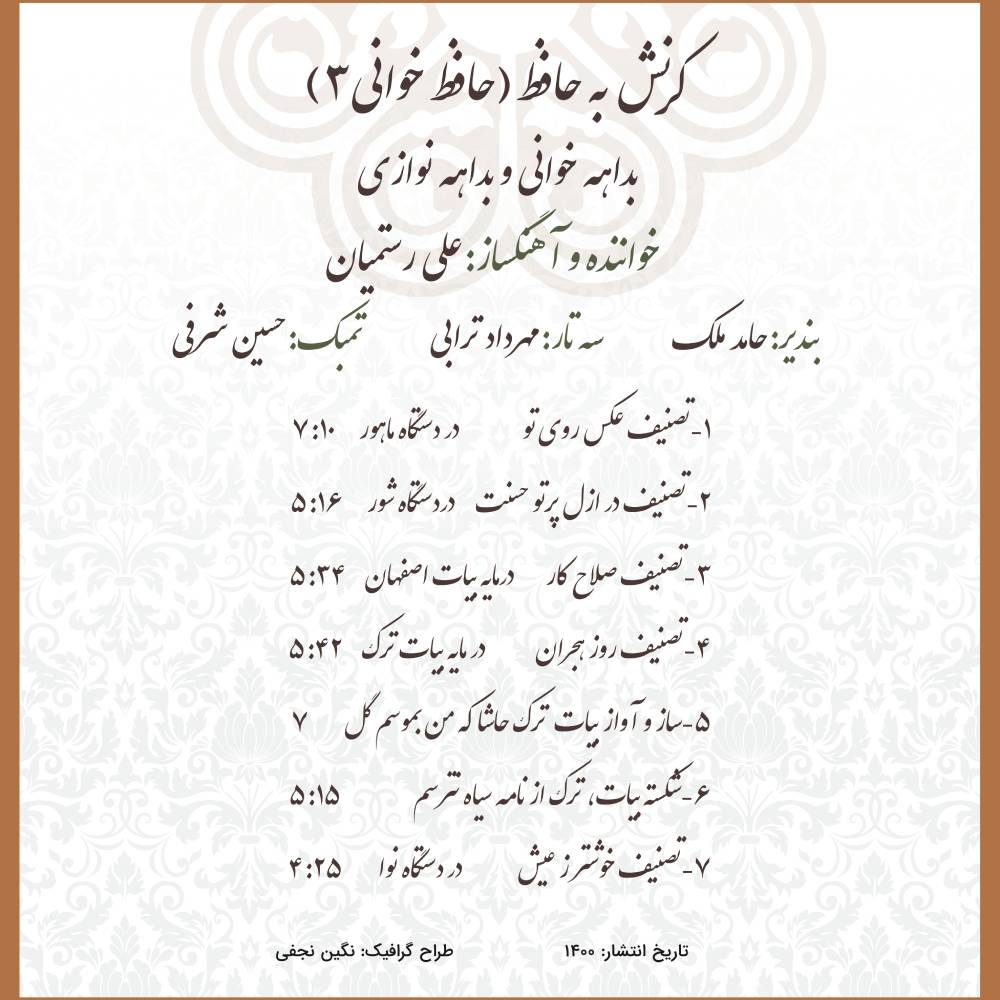 کرنش به حافظ (حافظ خوانی ۳)
بداهه خوانی و بداهه نوازی
خواننده و آهنگساز: علی رستمیان
بندیر: حامد ملک سه تار: مهرداد ترابی تمبک: حسین شرفی
۱- تصنیف عکس روی تو در دستگاه ماهور ۷:۱۰
۲- تصنیف در ازل پرتو حسنت دردستگاه شور ۵:۱۶
۳- تصنیف صلاح کار درمایه بیات اصفهان ۵:۳۴
۴- تصنیف روز هجران در مایه بیات ترک ۵:۴۲
۵-ساز و آواز بیات ترک حاشا که من بموسم گل ۷
۶-شکسته بیات، ترک از نامه سیاه نترسم ۵:۱۵
۷- تصنیف خوشتر ز عیش در دستگاه نوا ۴:۲۵
تاریخ انتشار: ۱۴۰۰ طراح گرافیک: نگین نجفی